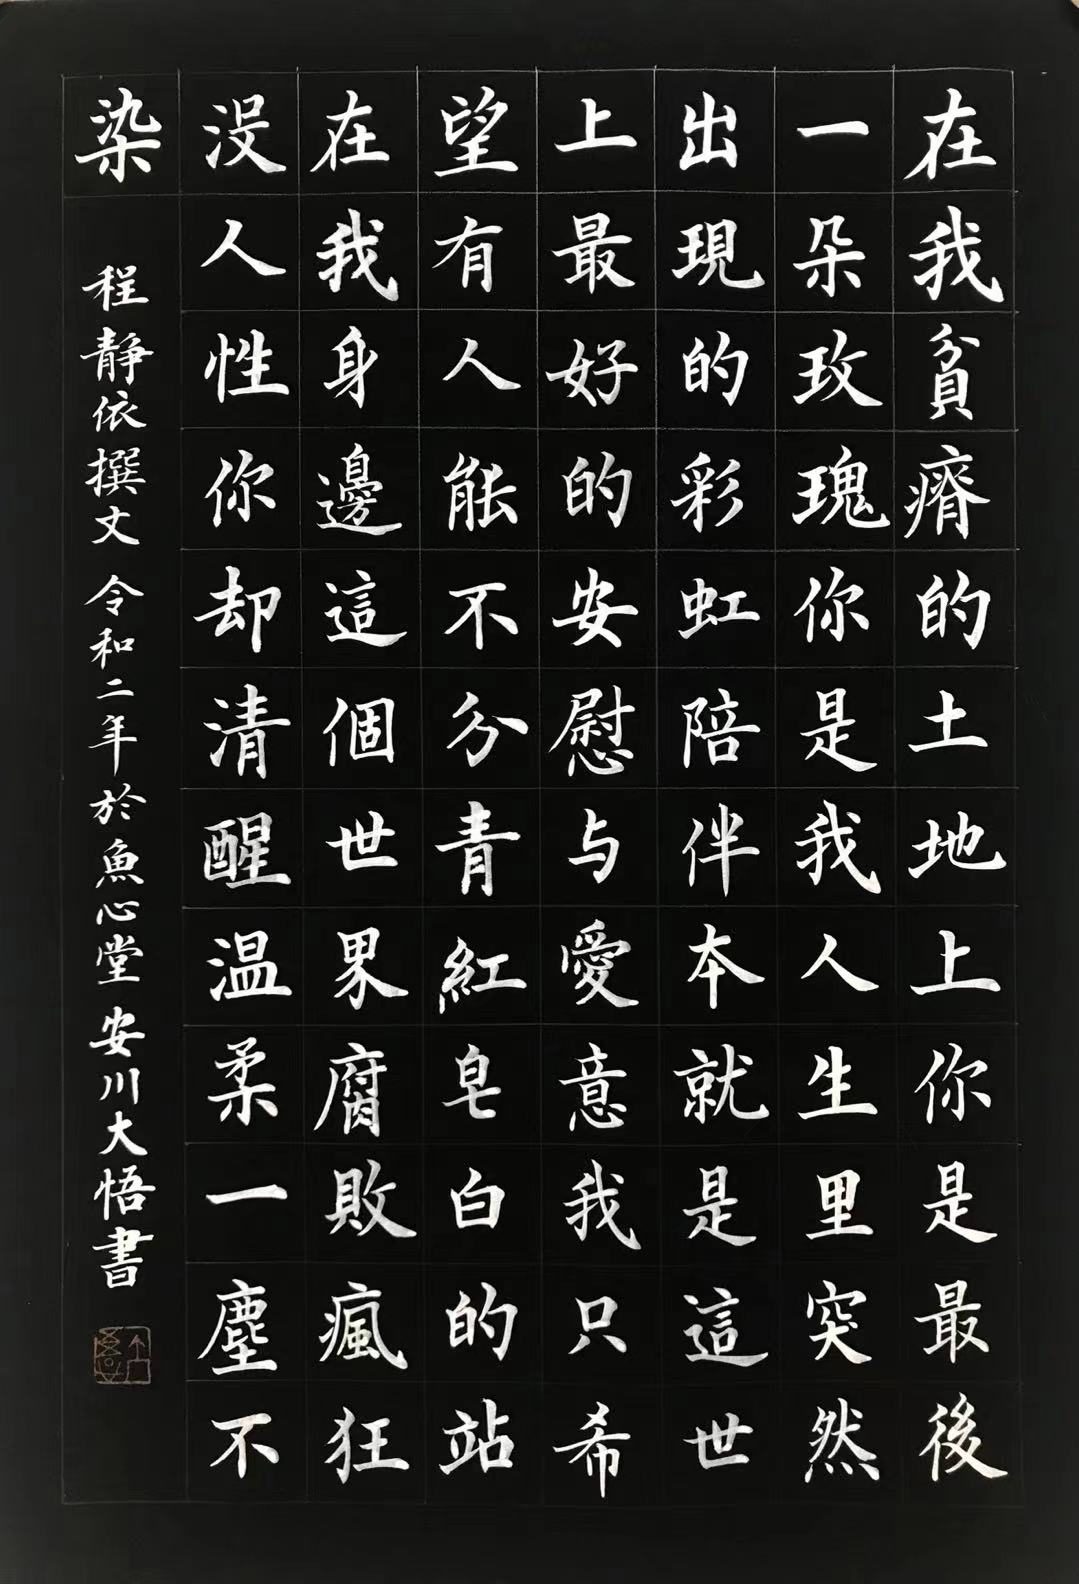 在我貧瘠的土地上你是最後
一朵玫瑰你是我人生里突然
出現的彩虹陪伴本就是這世
上最好的安慰与愛意我只希
望有人能不分青紅皂白的站
在我身邊這個世界腐敗瘋狂
没人性你却清醒温柔一塵不
染
程静依撰文 令和二年於魚心堂 安川大悟書